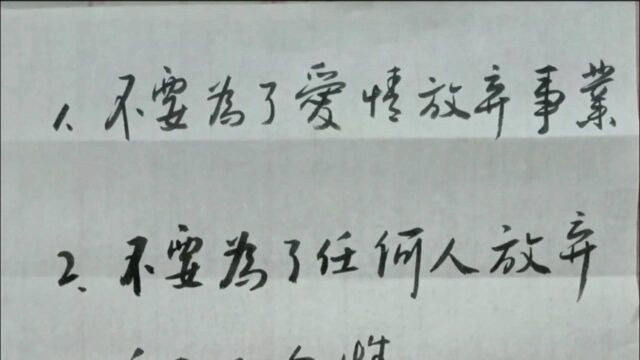 1、不要為了愛情放弃事業
2、不要為了任何人放弃